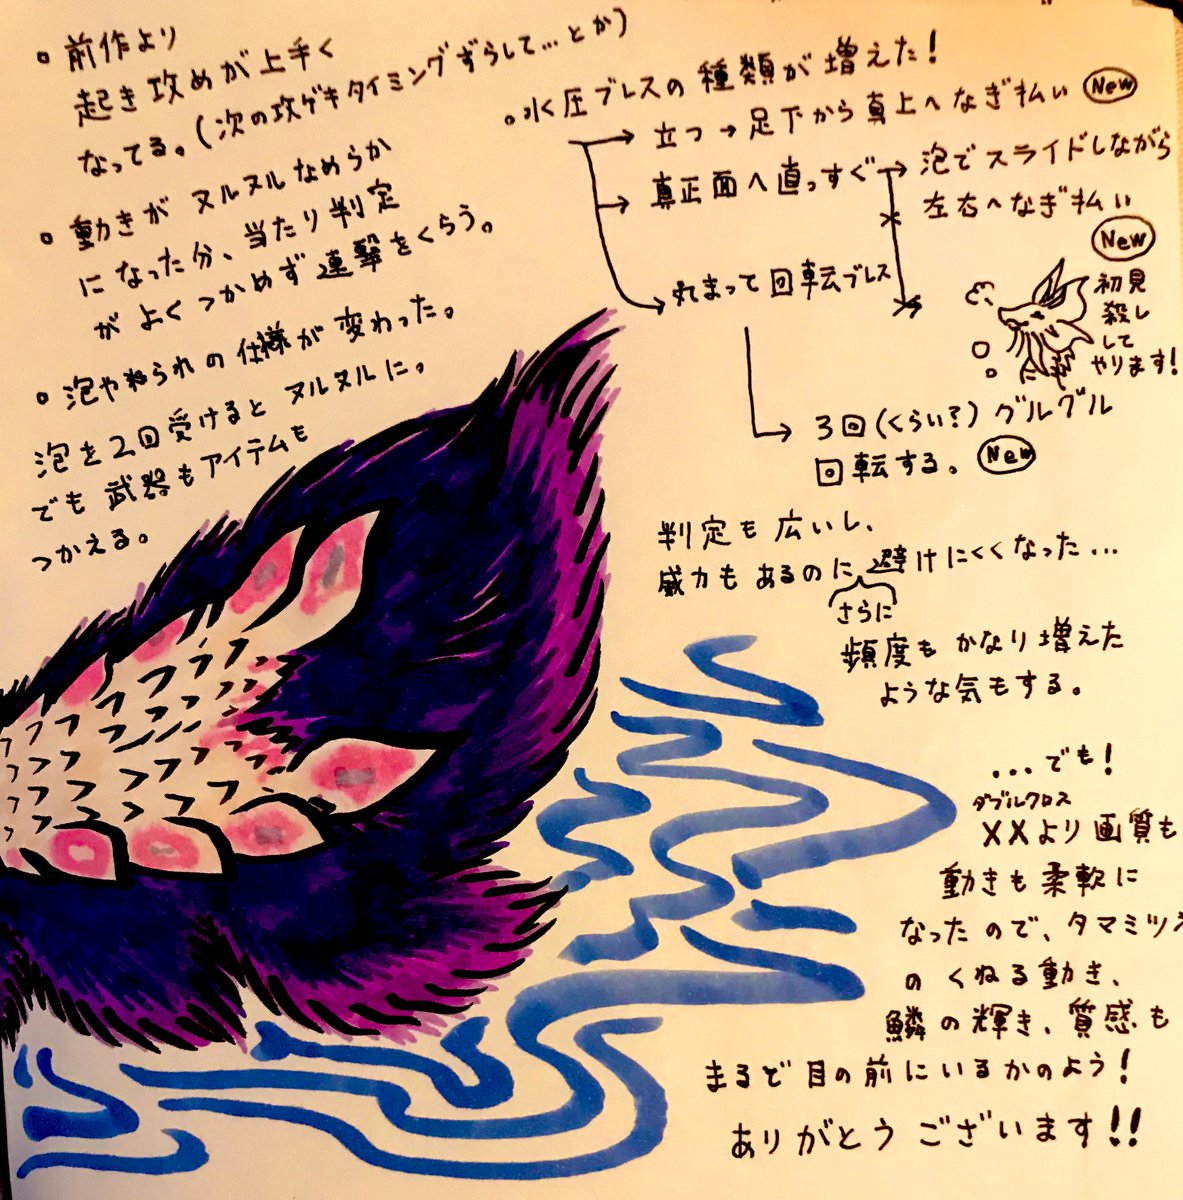 ○ 前作より
起き攻めが上手く
なってる。(次の攻ゲキタイミングずらして…とか)
○ 動きが ヌルヌルなめらか
になった分、当たり判定
がよくつかめず連撃をくらう。
○ 泡やられの仕様が変わった。
泡を2回受けるとヌルヌルに。
でも武器もアイテムも
つかえる。
○水圧ブレスの種類が増えた!
→ 立つ→足下から真上へなぎ払い New
→ 真正面へ直っすぐ → 泡でスライドしながら
左右へなぎ払い
New
→ 丸まって回転ブレス
初見
殺し
して
やります!
→ 3回(くらい?)グルグル
回転する。 New
判定も広いし、
威力もあるのに避けにくくなった…
さらに
頻度もかなり増えた
ような気もする。
…でも!
ダブルクロス
XXより画質も
動きも柔軟に
なったので、タマミツネ
のくねる動き、
鱗の輝き、質感も
まるで目の前にいるかのよう!
ありがとうございます!!